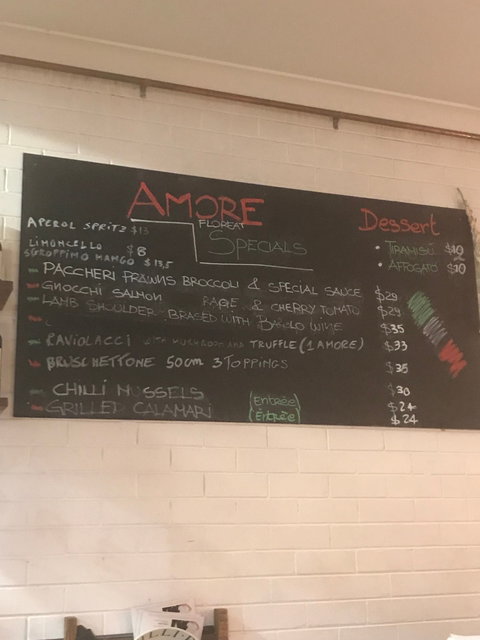 AMORE
FLOREAT
SPECIALS
Dessert
APEROL SPRITZ $13
LIMONCELLO $8
SGROPPINO MANGO $13,5
• TIRAMISÙ $10
• AFFOGATO $10
PACCHERI PRAWNS BROCCOLI & SPECIAL SAUCE $29
GNOCCHI SALMON & CHERRY TOMATO $29
LAMB SHOULDER BRASED WITH BAROLO WINE $35
RAVIOLACCI WITH MUSHROOM AND TRUFFLE (1 AMORE) $33
BRUSCHETTONE 50cm 3 TOPPINGS $35
$30
CHILLI MUSSELS (Entrèe) $24
GRILLED CALAMARI (Entrèe) $24